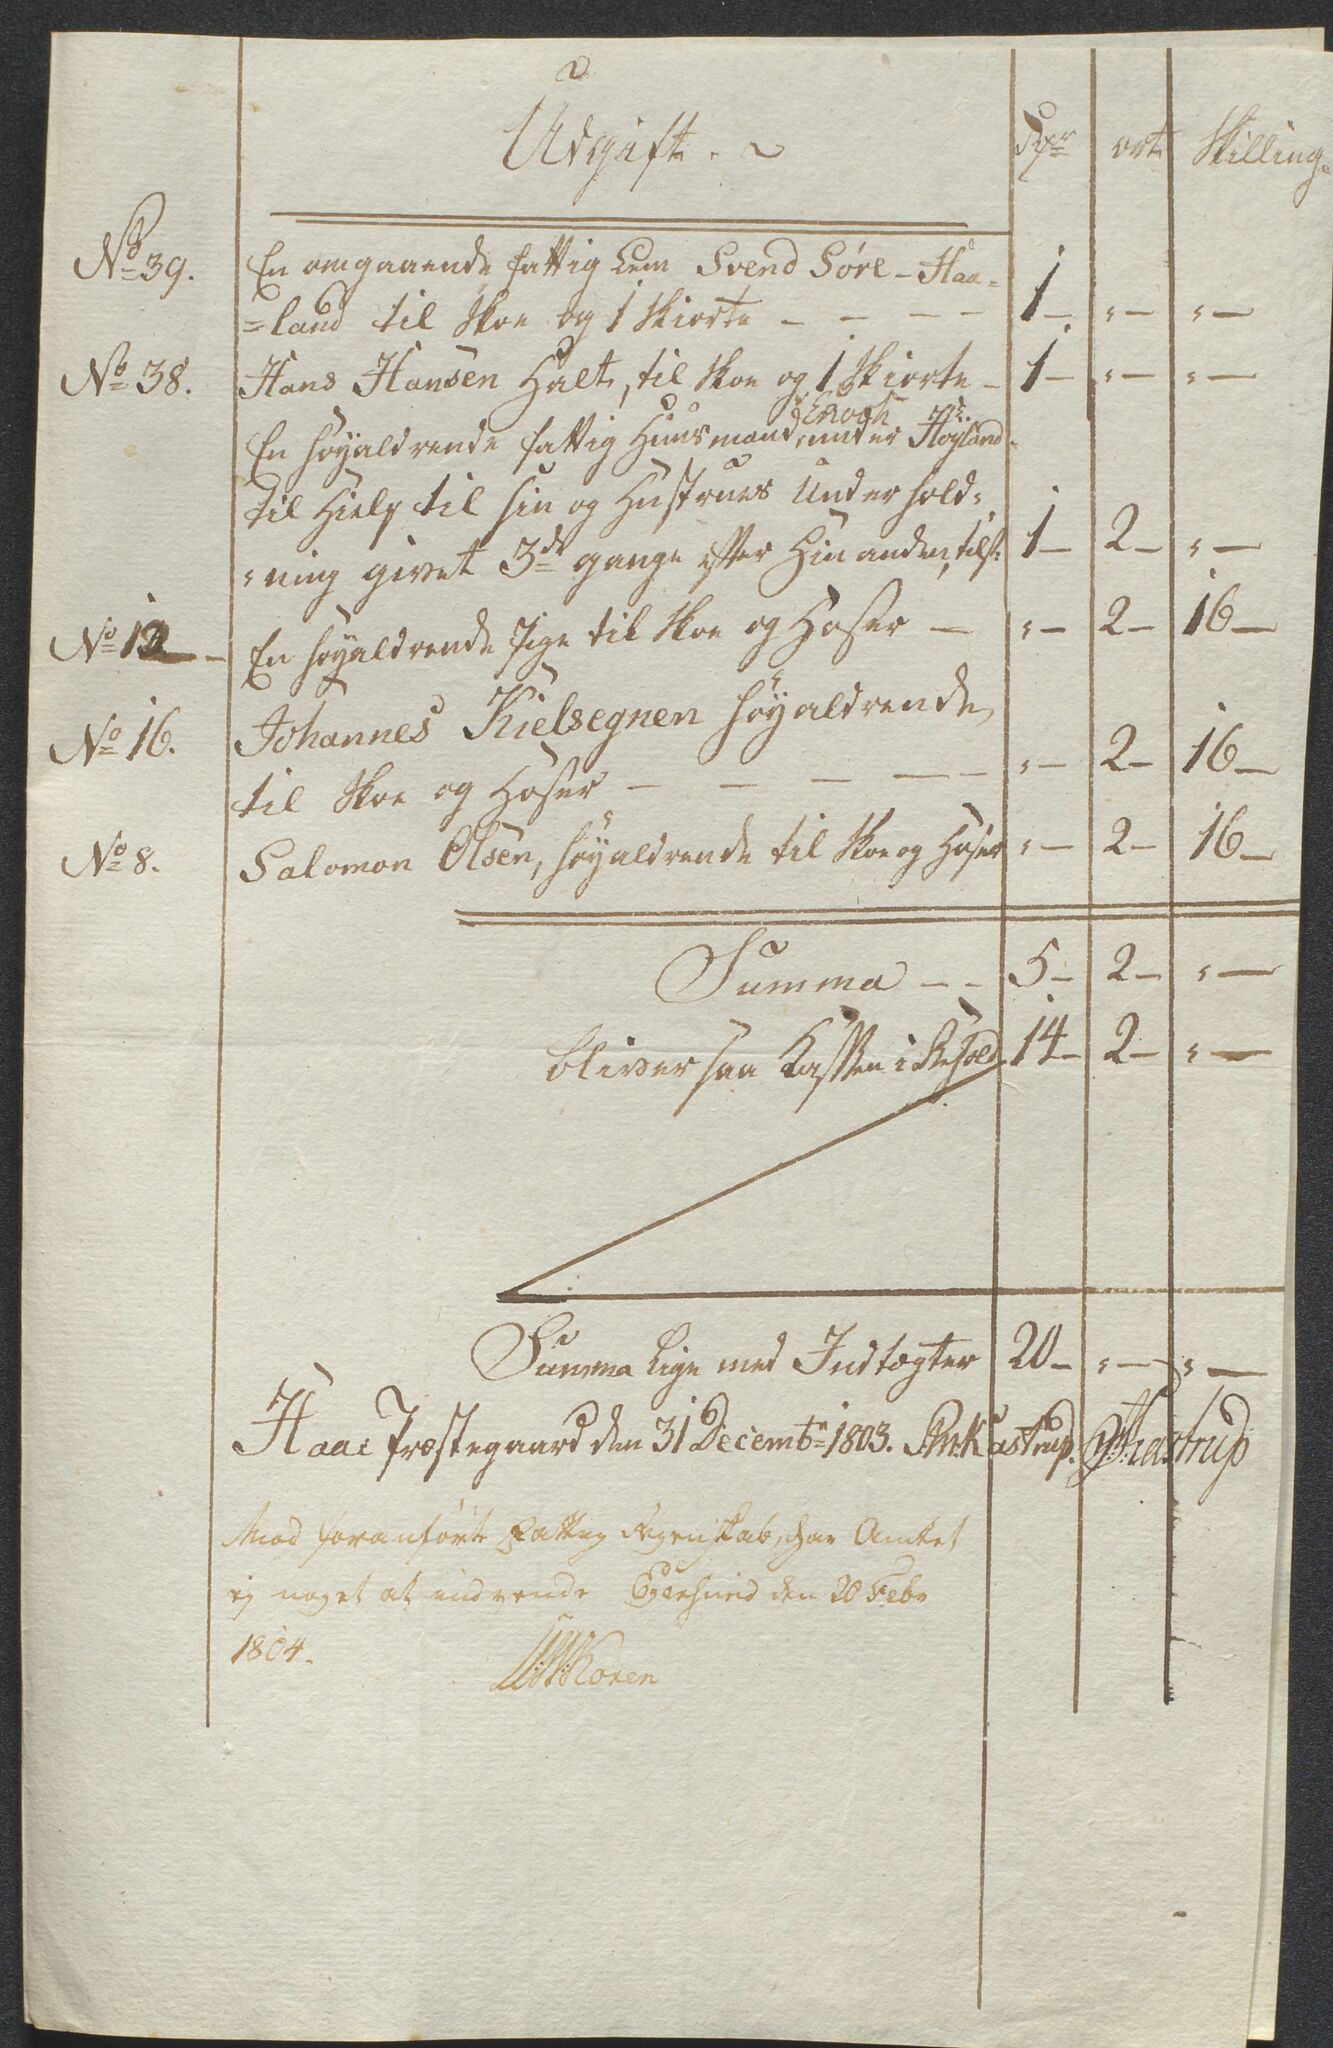 Udgift.
Rdr ort Skilling.
No 39. En omgaaende fattig Lem Svend Søre-Haa=
=land til Skoe og 1 Skiorte - - - - 1 - „ - „ -
No 38. Hans Hansen Halt, til Skoe og 1 Skiorte - 1 - „ - „ -
Enoch
En høyaldrende fattig Huusmand, under Høyland
til Hielp til sin og Hustrues Underhold=
=ning givet 3de gange efter Hinanden, tils: 1 - 2 - „ -
No 12 En høyaldrende Pige til Skoe og Hoser - „ - 2 - 16 -
No 16. Johannes Kielsegnen høyaldrende
til Skoe og Hoser - - - - - „ - 2 - 16 -
No 8. Salomon Olsen, høyaldrende til Skoe og Hoser „ - 2 - 16 -
Summa - - 5 - 2 - „ -
bliver saa Kassen i Behold 14 - 2 - „ -
Summa lige med Indtægter 20 - „ - „ -
Haae Præstegaard den 31 Decembr 1803. Kastrup. Kastrup
Mod foranførte Fattig Regenskab, har Amtet
ej noget at indvende Egersund den 20 Febr
1804.
Koren